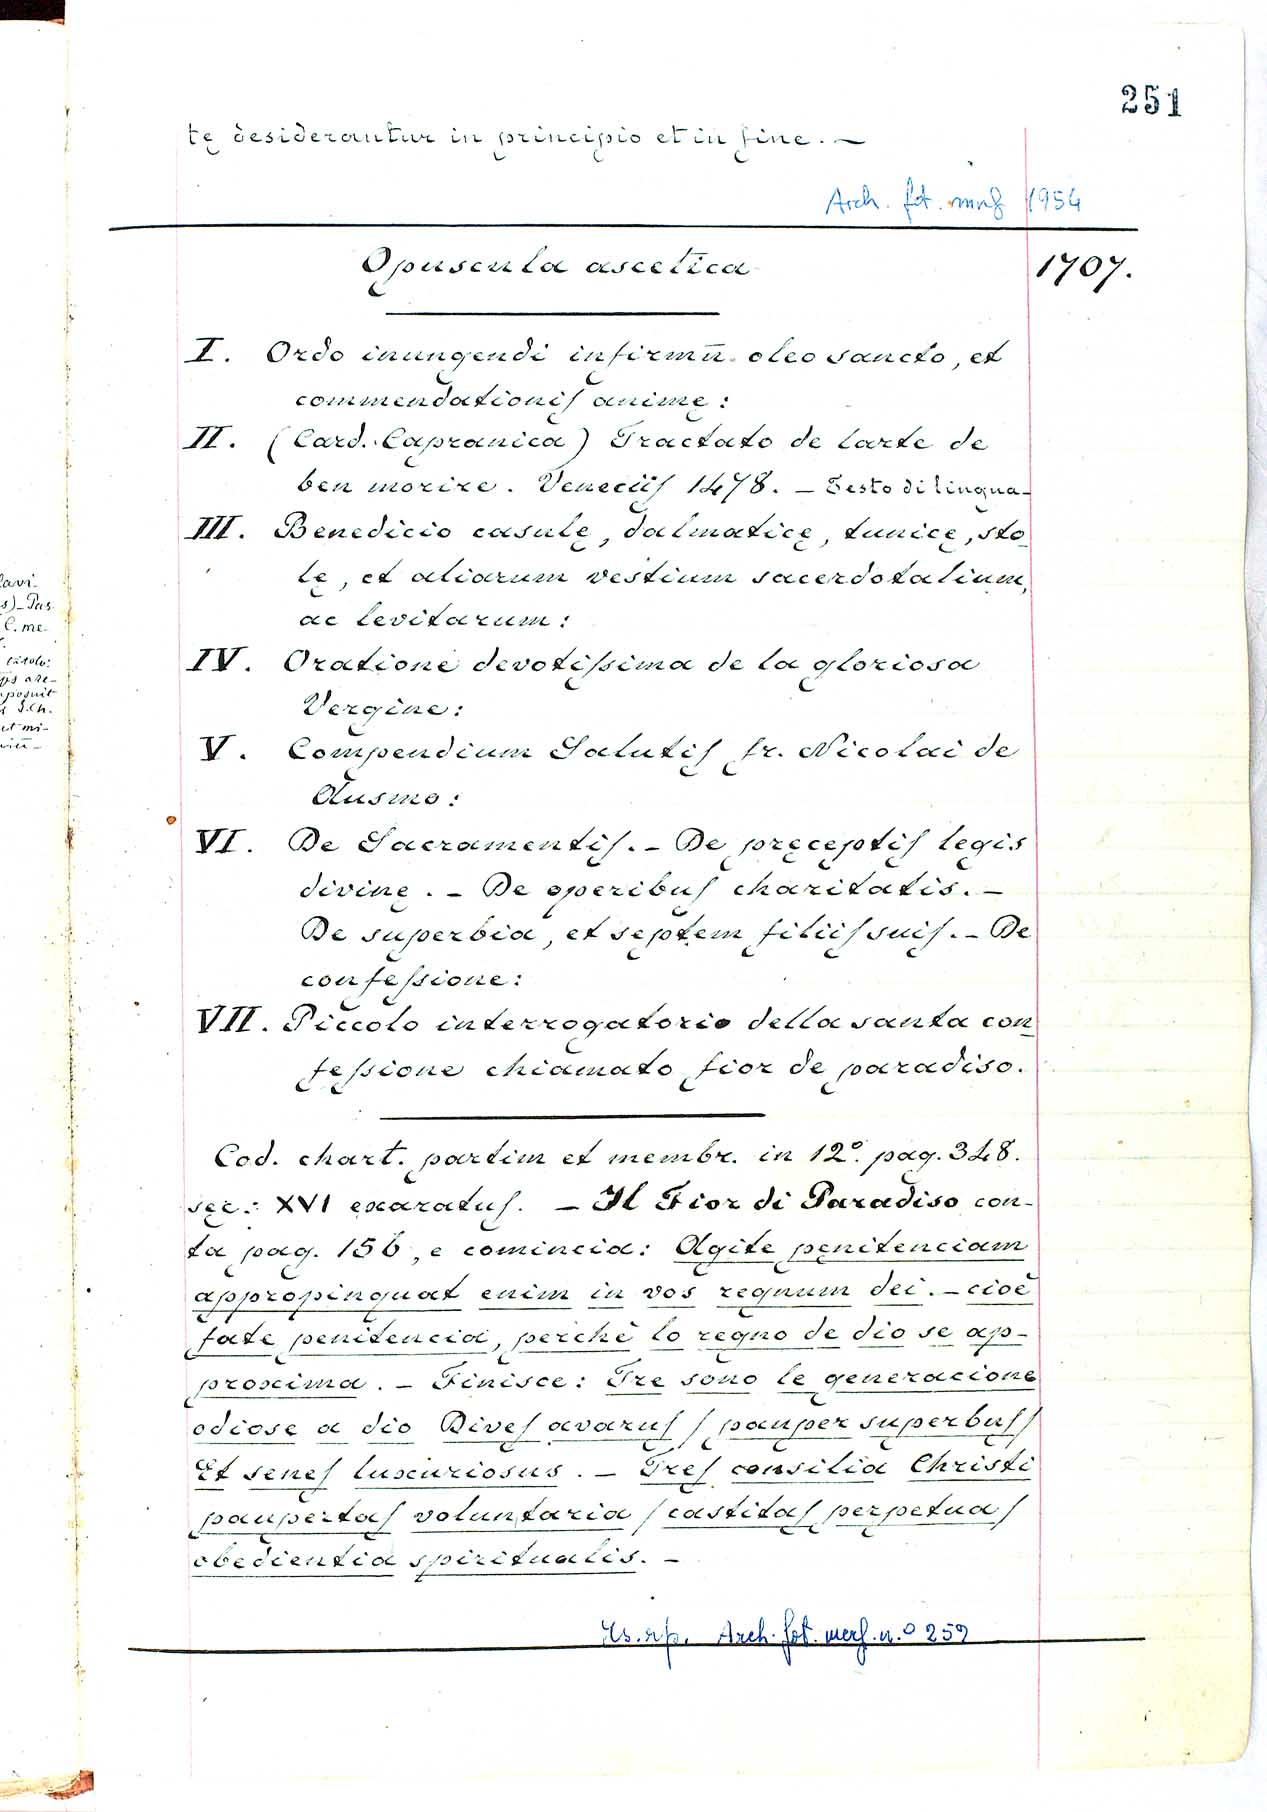 251
tę desiderantur in principio et in fine. —
Arch. fot. 1954
Opuscula ascetica
1707.
I. Ordo inungendi infirmū oleo sancto, et
commendationiſ animę:
II. (Card. Capranica) Tractato de larte de
ben morire. Veneciiſ 1478. – Testo di lingua–
III. Benedicio casulę, dalmaticę, tunicę, sto
lę, et aliarum vestium sacerdotalium,
ac levitarum:
IV. Oratione devotiſsima de la gloriosa
Vergine:
V. Compendium Salutiſ fr. Nicolai de
Ausmo:
VI. De Sacramentiſ. – De pręceptiſ legis
divinę. – De operibuſ charitatis. –
De superbia, et septem filiiſ suiſ. – De
confeſsione:
VII. Piccolo interrogatorio della santa con
feſsione chiamato fior de paradiso.
Cod. chart. partim et membr. in 12º. pag. 348.
sęc: XVI exaratuſ. – Il Fior di Paradiso con-
ta pag. 156, e comincia: Agite pęnitenciam
appropinquat enim in vos regnum dei. – cioè
fate penitencia, perchè lo regno de dio se ap-
proxima. – Finisce: Tre sono le generacione
odiose a dio Diveſ avaruſ / pauper superbuſ /
Et seneſ luxuriosus. – Treſ consilia Christi
paupertaſ voluntaria / castitaſ perpetua /
obedientia spiritualis. –
Arch. fot. n.º 259
lavi-
s)–Pas
C. me-
posuit
et mi-